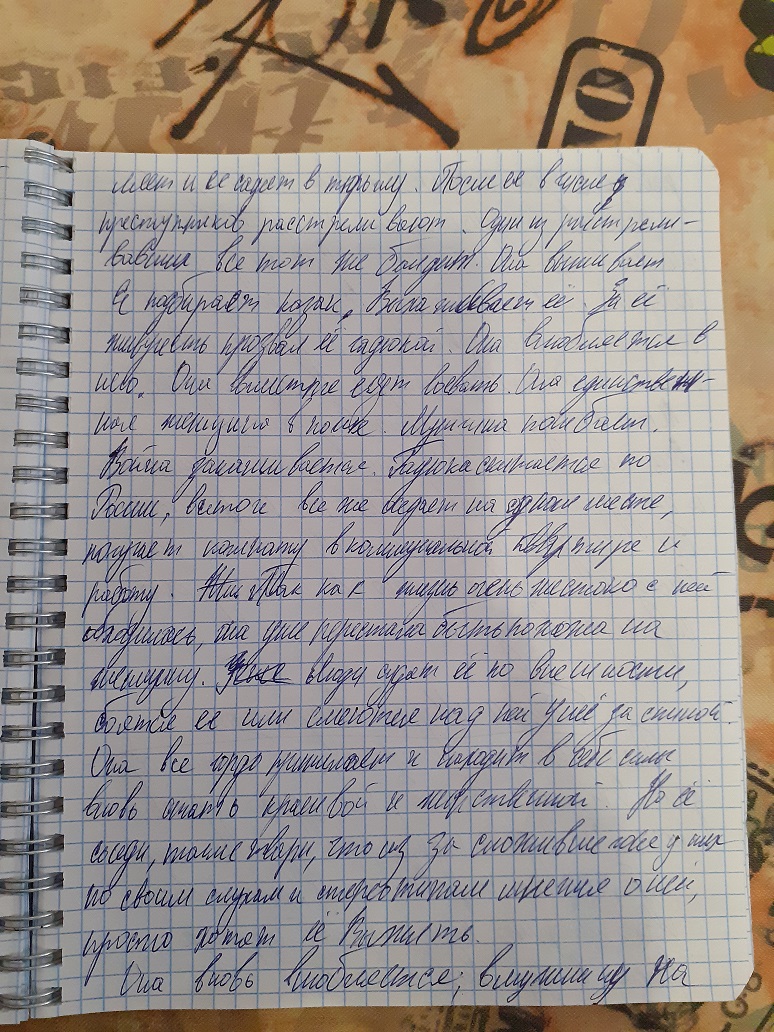 и ее садят в тюрьму. После ее в числе
преступников расстреливают. Один из расстрели-
вавших все тот же бандит. Она выживает
Её подбирает казак, Выхаживает её. За её
живучесть прозвал её гадюкой. Она влюбляется в
него. Они вместе едут воевать. Она единствен-
ная женщина в полке. Мужчина погибает.
Война заканчивается. Гадюка скитается по
России, в итоге все же оседает на одном месте,
получает комнату в коммунальной квартире и
работу. Так как жизнь очень жестоко с ней
обходилась, она уже перестала быть похожа на
женщину. люди судят её по внешности,
боятся ее или смеются над ней у неё за спиной.
Она все гордо принимает и находит в себе силы
вновь стать красивой и женственной. Но её
соседи, такие твари, что из за сложившегося у них
по своим слухам и стереотипам мнения о ней,
просто хотят её Выжить.
Она вновь влюбляется, в мужчину на